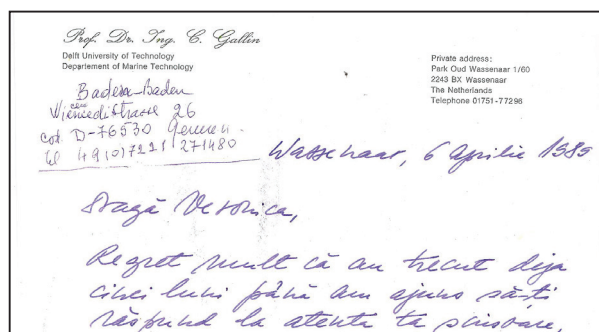 Prof. Dr. Ing. C. Gallin
Delft University of Technology
Departement of Marine Technology
Private address:
Park Oud Wassenaar 1/60
2243 BX Wassenaar
The Netherlands
Telephone 01751-77296
Baden-Baden
26
cod. D-76530
271480
Wassenaar, 6 Aprilie 1989
Dragă Veronica,
Regret mult că au trecut deja
cinci luni până am ajuns să-ți
răspund la atenta ta scrisoare,